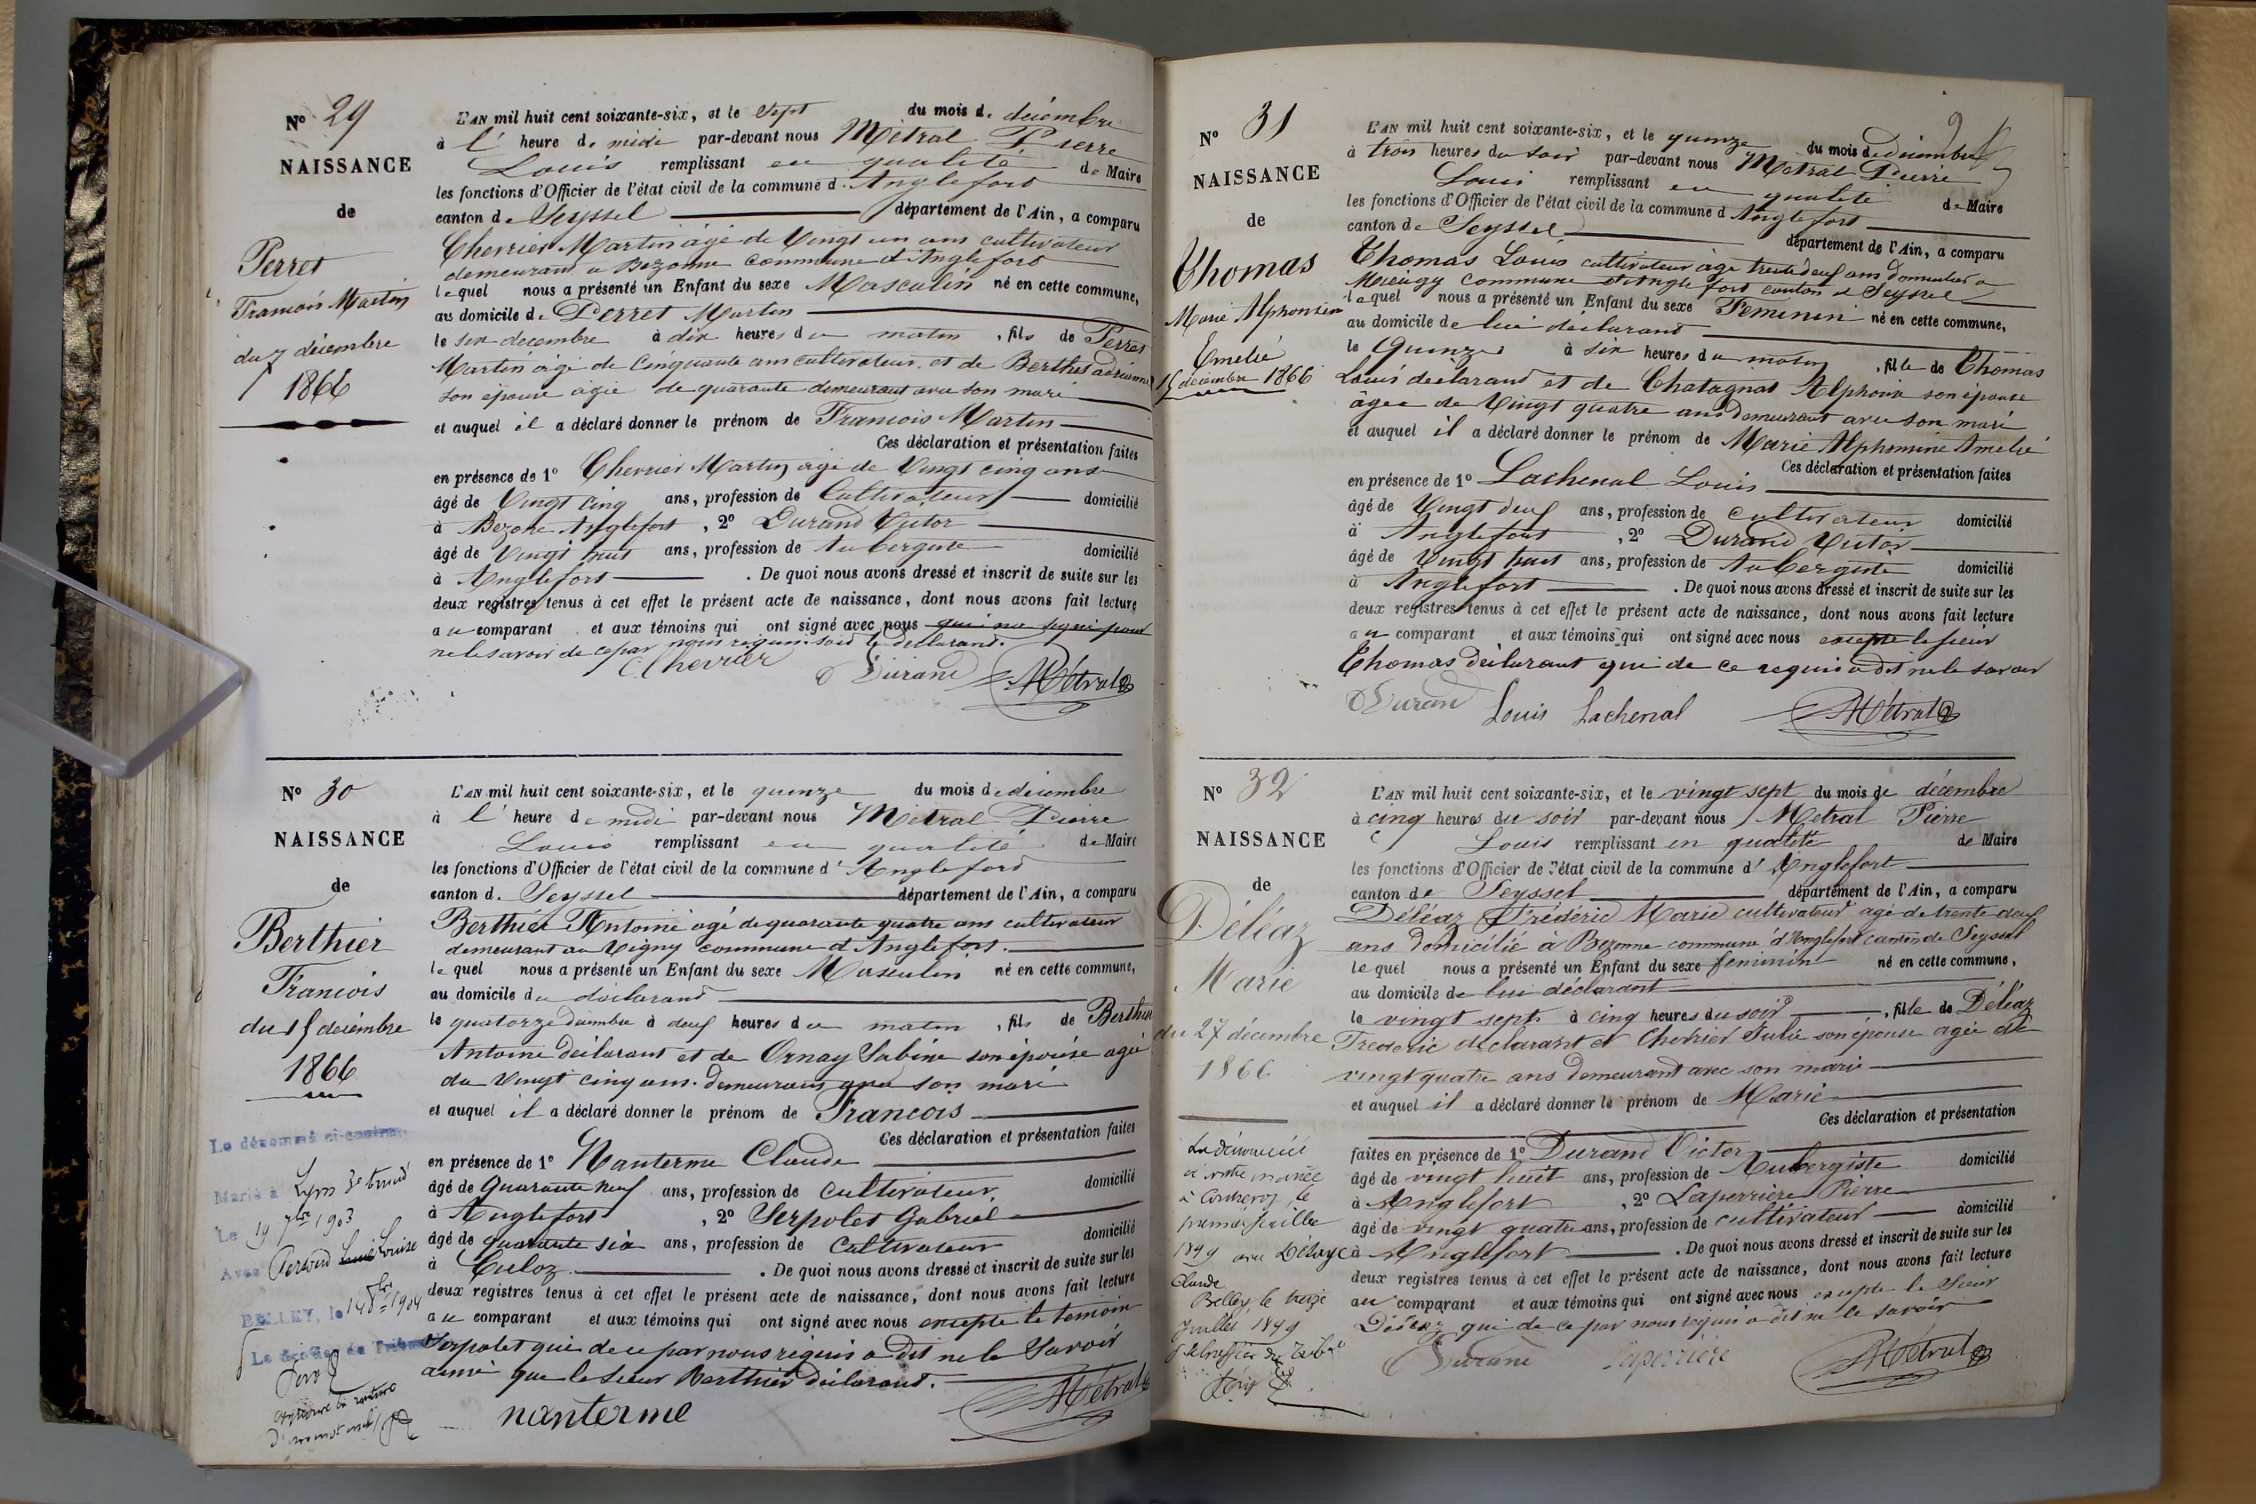 N° 29
NAISSANCE
de
Perret
Francois Martin
du 7 décembre
1866
L'AN mil huit cent soixante-six, et le Sept du mois de décembre
à l' heure de midi par-devant nous Métral Pierre
Louis remplissant en qualité de Maire
les fonctions d'Officier de l'état civil de la commune d' Anglefort
canton de Seyssel département de l'Ain, a comparu
Chevrier Martin âgé de Vingt un ans cultivateur
demeurant a Bezonne commune d'Anglefort
lequel nous a présenté un Enfant du sexe Masculin né en cette commune,
au domicile de Perret Martin
le six decembre à dix heures du matin, fils de Perret
Martin âgé de Cinquante ans cultivateur et de Berthet
son épouse agée de quarante demeurant avec son mari
et auquel il a déclaré donner le prénom de Francois Martin
Ces déclaration et présentation faites
en présence de 1° Chevrier Martin âgé de Vingt cinq ans
âgé de Vingt cinq ans, profession de Cultivateur domicilié
à Bezone Anglefort, 2° Durand Victor
âgé de Vingt huit ans, profession de Aubergiste domicilié
à Anglefort. De quoi nous avons dressé et inscrit de suite sur les
deux registres tenus à cet effet le présent acte de naissance, dont nous avons fait lecture
au comparant et aux témoins qui ont signé avec nous
ne le savoir de ce par nous requis soit le déclarant.
Chevrier Durand Métral
N° 30
NAISSANCE
de
Berthier
Francois
du 15 décembre
1866
L'AN mil huit cent soixante-six, et le quinze du mois de décembre
à l' heure de midi par-devant nous Métral Pierre
Louis remplissant en qualité de Maire
les fonctions d'Officier de l'état civil de la commune d' Anglefort
canton de Seyssel département de l'Ain, a comparu
Berthier Antoine agé de quarante quatre ans cultivateur
demeurant au Vigny commune d'Anglefort.
lequel nous a présenté un Enfant du sexe Masculin né en cette commune,
au domicile du déclarant
le quatorze décembre à deux heures du matin, fils de Berthier
Antoine déclarant et de Ornay Sabine son épouse agée
de Vingt cinq ans. demeurant avec son mari
et auquel il a déclaré donner le prénom de Francois
Ces déclaration et présentation faites
en présence de 1° Nanterme Claude
âgé de Quarante neuf ans, profession de cultivateur domicilié
à Anglefort, 2° Serpolet Gabriel
âgé de quarante six ans, profession de Cultivateur domicilié
à Culoz. De quoi nous avons dressé et inscrit de suite sur les
deux registres tenus à cet effet le présent acte de naissance, dont nous avons fait lecture
au comparant et aux témoins qui ont signé avec nous excepté le témoin
Serpolet qui de ce par nous réquis a dit ne le Savoir
ainsi que le Sieur Berthier déclarant.
nanterme Métral
Le dénommé ci-contre
Marié à Lyon 3e
Le 19 7bre 1903
Avec Louise
BELLEY, le 14 8bre 1904
Le Greffier du Tribunal
N° 31
NAISSANCE
de
Thomas
Marie Alphonsine
Emelie
15 décembre 1866
L'AN mil huit cent soixante-six, et le quinze du mois de décembre
à trois heures du soir par-devant nous Métral Pierre
Louis remplissant en qualité de Maire
les fonctions d'Officier de l'état civil de la commune d'Anglefort
canton de Seyssel département de l'Ain, a comparu
Thomas Louis cultivateur âgé trente deux ans domicilié a
commune d'Anglefort canton de Seyssel
lequel nous a présenté un Enfant du sexe Feminin né en cette commune,
au domicile de lui déclarant
le Quinze à six heures du matin, fille de Thomas
Louis déclarant et de Chatagnat Alphonsine son épouse
âgée de Vingt quatre ans demeurant avec son mari
et auquel il a déclaré donner le prénom de Marie Alphonsine Amelie
Ces déclaration et présentation faites
en présence de 1° Lachenal Louis
âgé de Vingt deux ans, profession de cultivateur domicilié
à Anglefort, 2° Durand Victor
âgé de Vingt huit ans, profession de Aubergiste domicilié
à Anglefort. De quoi nous avons dressé et inscrit de suite sur les
deux registres tenus à cet effet le présent acte de naissance, dont nous avons fait lecture
au comparant et aux témoins qui ont signé avec nous excepté le sieur
Thomas déclarant qui de ce requis a dit ne le savoir
Durand Louis Lachenal Métral
N° 32
NAISSANCE
de
Déléaz
Marie
du 27 décembre
1866
L'AN mil huit cent soixante-six, et le vingt sept du mois de décembre
à cinq heures du soir par-devant nous Métral Pierre
Louis remplissant en qualité de Maire
les fonctions d'Officier de l'état civil de la commune d' Anglefort
canton de Seyssel département de l'Ain, a comparu
Déléaz Fréderic Marie cultivateur agé de trente deux
ans domicilié à Bezonne commune d'Anglefort canton de Seyssel
lequel nous a présenté un Enfant du sexe feminin né en cette commune,
au domicile de lui déclarant
le vingt sept à cinq heures du soir, fille de Déléaz
Frederic déclarant et Chevrier Julie son épouse agée de
vingt quatre ans demeurant avec son mari
et auquel il a déclaré donner le prénom de Marie
Ces déclaration et présentation
faites en présence de 1° Durand Victor
âgé de vingt huit ans, profession de Aubergiste domicilié
à Anglefort, 2° Laperrière Pierre
âgé de vingt quatre ans, profession de cultivateur domicilié
à Anglefort. De quoi nous avons dressé et inscrit de suite sur les
deux registres tenus à cet effet le présent acte de naissance, dont nous avons fait lecture
au comparant et aux témoins qui ont signé avec nous excepté le Sieur
Déléaz qui de ce par nous requis a dit ne le savoir
Durand Laperrière Métral
La dénommée
ci contre mariée
à le
premier juillet
1899 avec Délaye
Claude
Belley, le treize
Juillet 1899